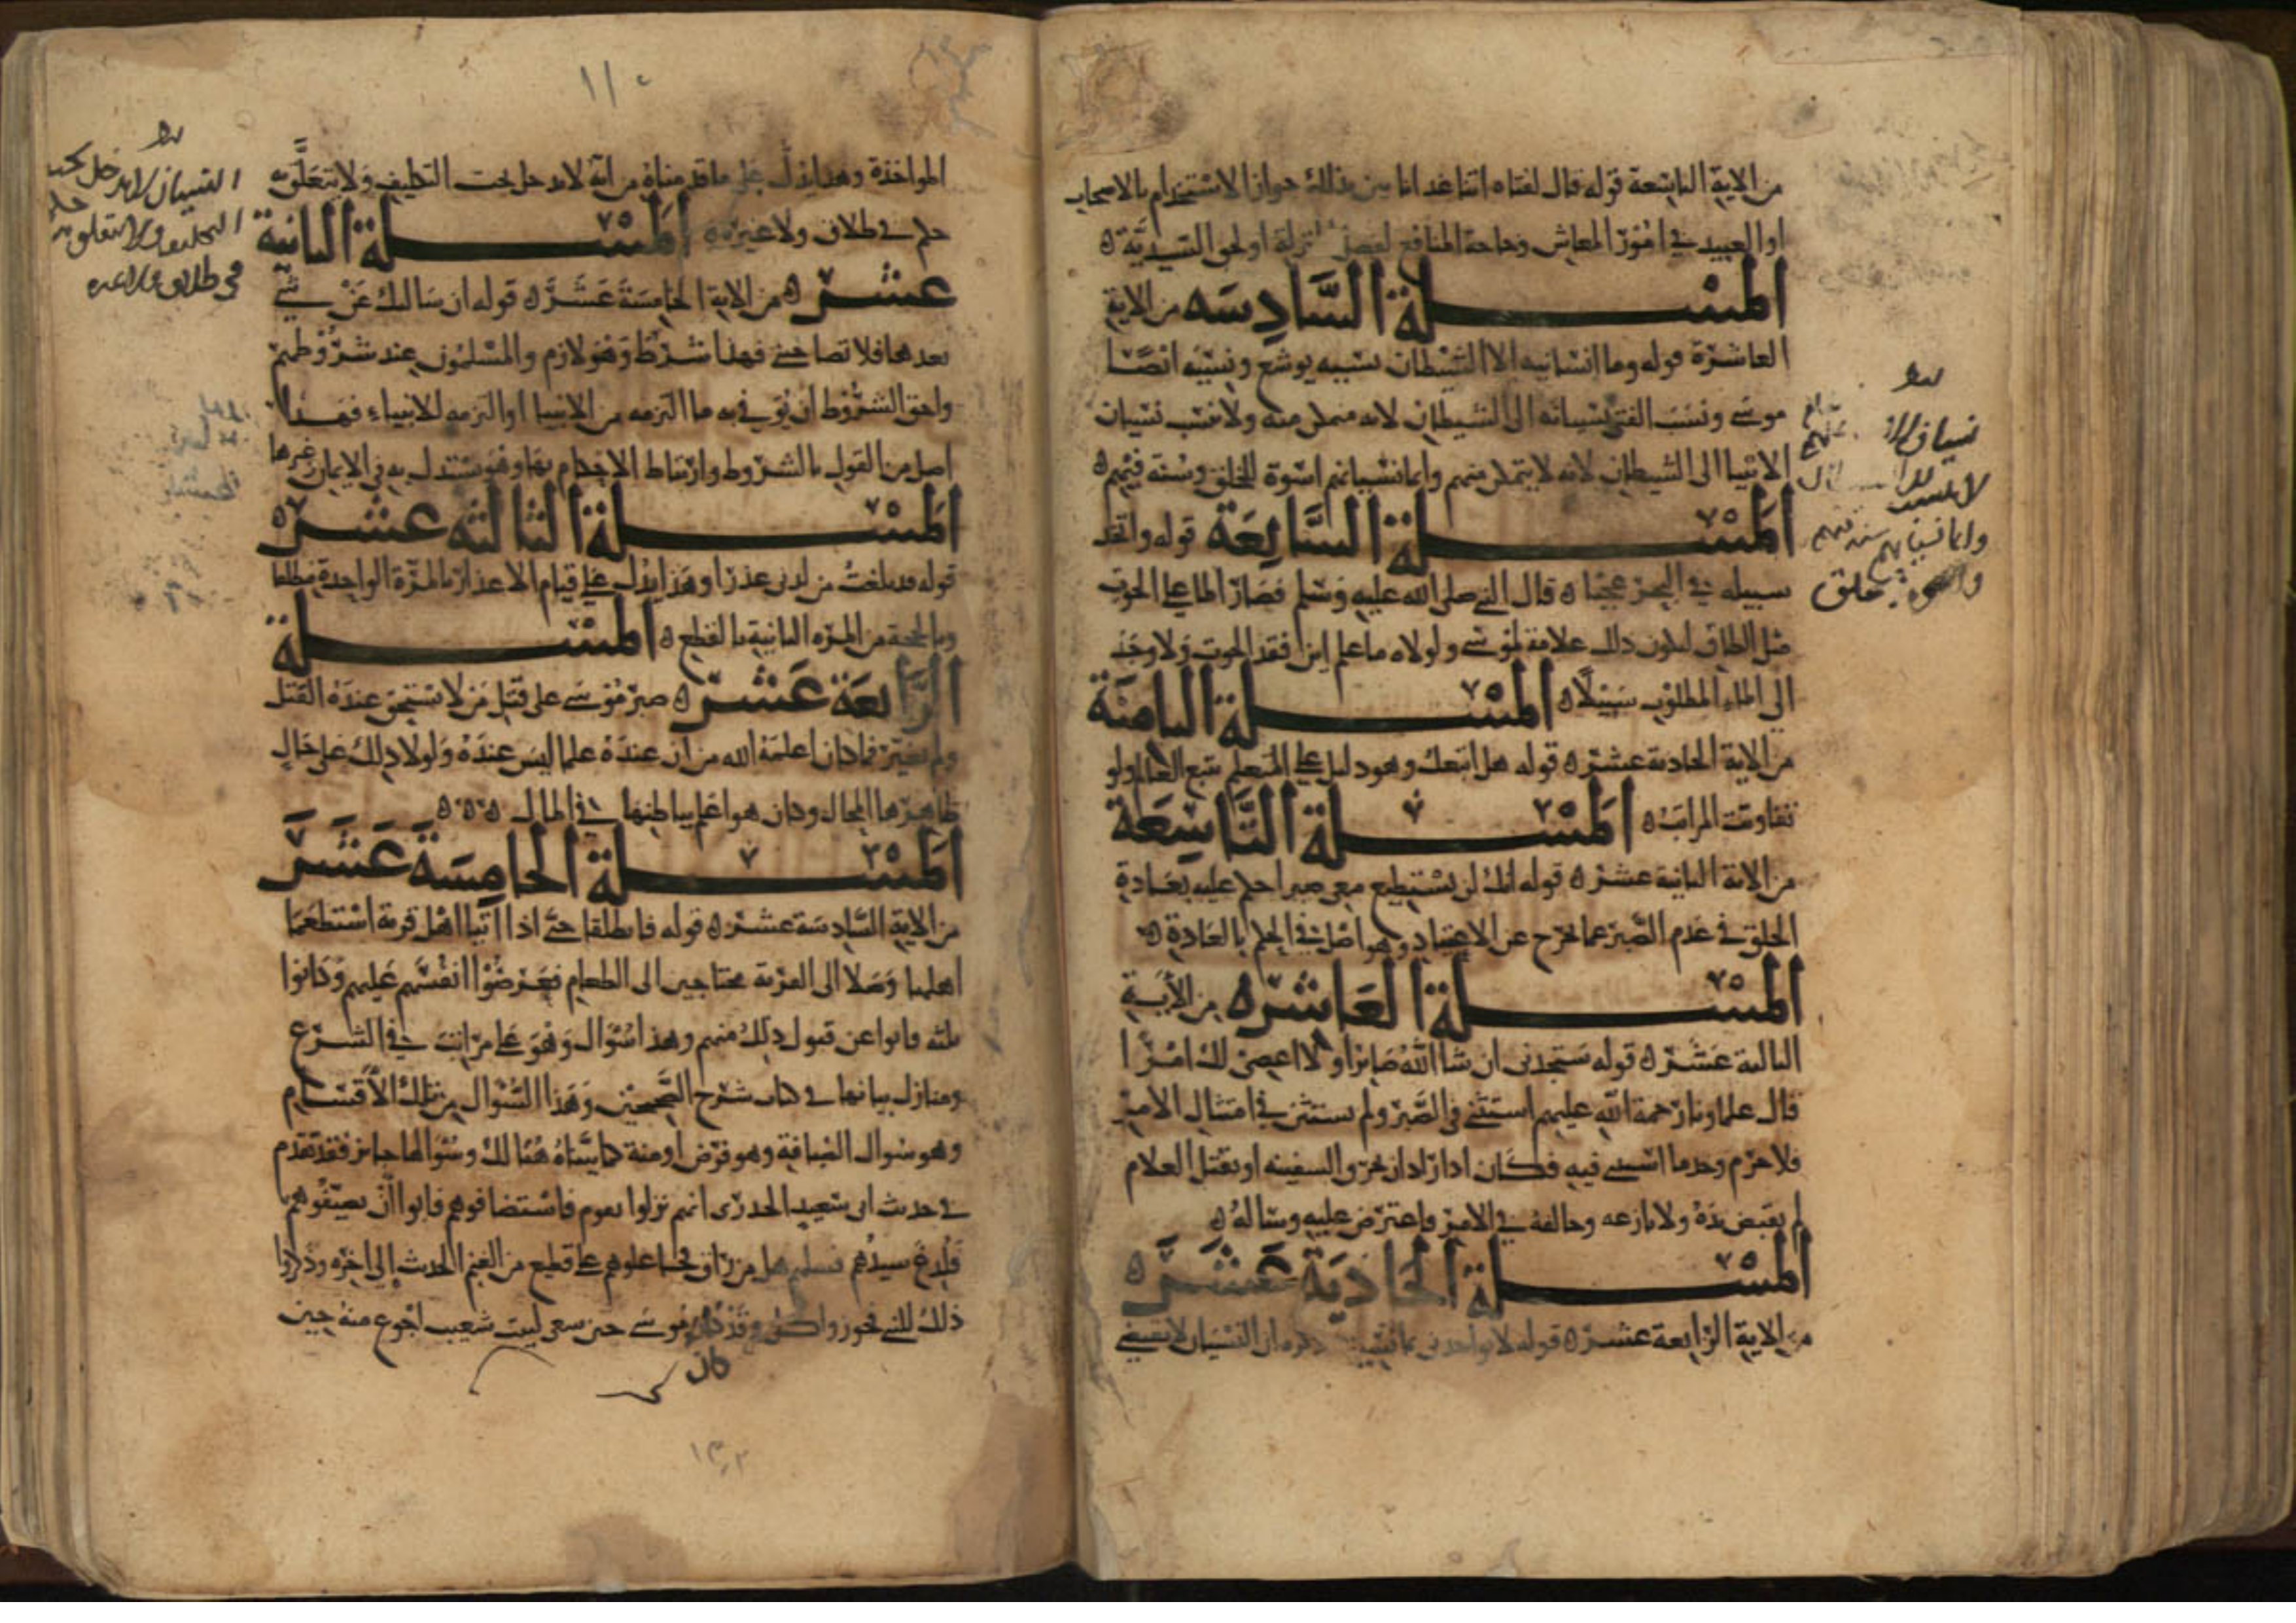 من الاية التاسعة قوله قال لفتاه اتنا غدانا بين بذلك جواز الاستخدام بالاصحاب
او العبيد في امور المعاش وحاجة المنافع لفضل المنزلة او لحق السيدية
المسلة السادسه من الاية
العاشرة قوله وما انسانيه الا الشيطان نسيه يوشع ونسيه ايضا
موسى ونسب الفتى نسيانه الى الشيطان لانه متمكن منه ولا ينسب نسيان
الانبيا الى الشيطان لانه لا يتمكن منهم وانما نسيانهم اسوة للخلق وسنة فيهم
المسلة السابعة قوله واتخذ
سبيله في البحر عجبا قال النبي صلى الله عليه وسلم فصار الما على الحوت
مثل الطاق ليكون ذلك علامة لموسى ولولاه ما علم اين فقد الحوت ولا وجد
الى لقاء المطلوب سبيلا المسلة الثامنة
من الاية الحادية عشر قوله هل اتبعك وهو دليل على المتعلم يتبع العالم ولو
تفاوتت المراتب المسلة التاسعة
من الاية الثانية عشر قوله انك لن تستطيع معي صبرا حكم عليه بعادة
الخلق في عدم الصبر عما يخرج عن الاعتياد وهو اصل في الحكم بالعادة
المسلة العاشره من الاية
الثالثة عشر قوله ستجدني ان شا الله صابرا ولا اعصي لك امرا
قال علماونا رحمة الله عليهم استثنى في الصبر ولم يستثن في امتثال الامر
فلا جرم وجد ما استثنى فيه فكان اذا اراد ان يخرق السفينه او يقتل الغلام
لم يقبض يده ولا نازعه وخالفه في الامر فاعترض عليه وساله
المسلة الحادية عشر
من الاية الرابعة عشر قوله لا تواخذني بما نسيت ذكر ان النسيان لا يقتضي
نسيان
وانما نسيانهم
المواخذة وهذا يدل على ما قدمناه من انه لا يدخل تحت التكليف ولا يتعلق به
حكم في طلاق ولا غيره المسلة الثانية
عشر من الاية الخامسة عشر قوله ان سالتك عن شي
بعدها فلا تصاحبني فهذا شرط وهو لازم والمسلمون عند شروطهم
واحق الشروط ان يوفى به ما التزمه من الانبيا او التزمه للانبياء فهذا
اصل من القول بالشروط وارتباط الاحكام بها وهو يستدل به في الايمان وغيرها
المسلة الثالثه عشر
قوله قد بلغت من لدني عذرا وهذا يدل على قيام الاعذار بالمرة الواحدة مطلقا
وبالحجة من المره الثانية بالقطع المسلة
الرابعة عشر صبر موسى على قتل من لا يستحق عنده القتل
ولم يغير لما كان اعلمه الله من ان عنده علما ليس عنده ولولا ذلك على حال
ظاهرها المحال وكان هو اعلم بباطنها في المال
المسلة الخامسة عشر
من الاية السادسة عشر قوله فانطلقا حتى اذا اتيا اهل قرية استطعما
اهلها وصلا الى القرية محتاجين الى الطعام فعرضوا انفسهم عليهم وكانوا
ثلثه فابوا عن قبول ذلك منهم وهذا سوال وهو على مراتب في الشرع
ومنازل بيانها في كتاب شرح الصحيحين وهذا السوال من تلك الاقسام
وهو سوال الضيافة وهو فرض او سنة كما بيناه هنالك وسوالها جايز فقد تقدم
في حديث ابي سعيد الخدري انهم نزلوا بقوم فاستضافوهم فابوا ان يضيفوهم
فلدغ سيدهم فسالوهم هل من راق فجاعلوهم على قطيع من الغنم الحديث الى اخره وذكروا
ذلك للنبي فجوز واكل وقد كان موسى حين سعى لبيت شعيب اجوع منه حين
كان
النسيان لا يدخل تحت
التكليف ولا يتعلق به حكم
في طلاق ولا غيره